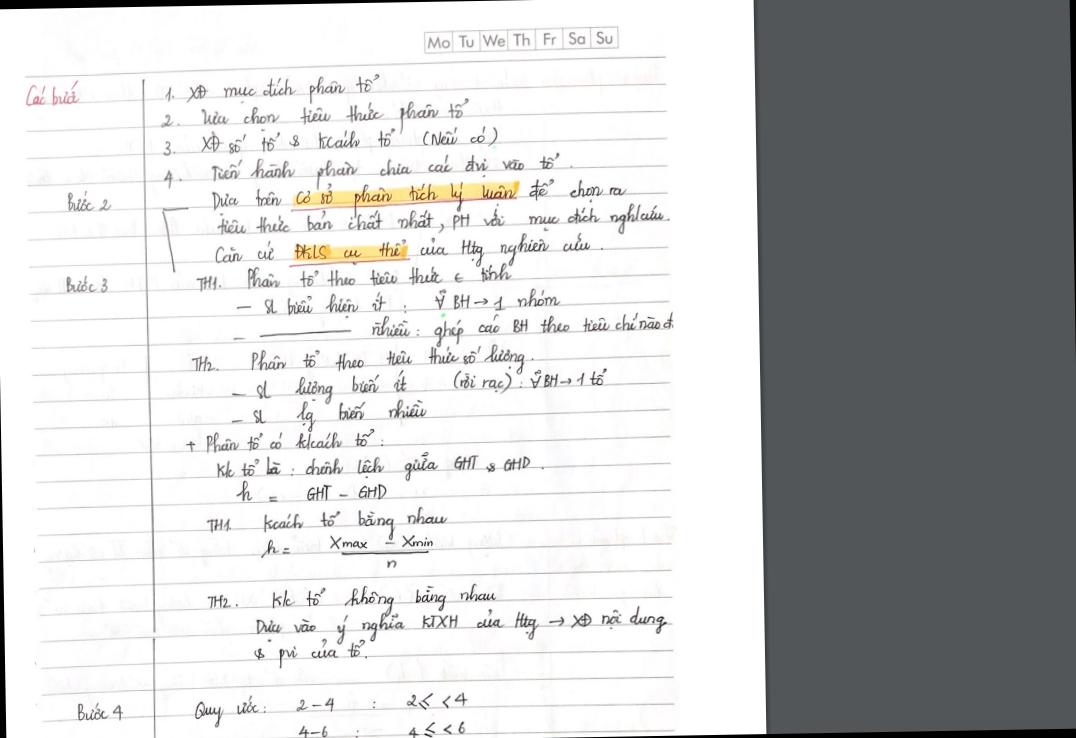 Mo Tu We Th Fr Sa Su
Các bước
1. XĐ mục đích phân tổ
2. Lựa chọn tiêu thức phân tổ
3. XĐ số tổ & kcách tổ (Nếu có)
4. Tiến hành phân chia các đvị vào tổ.
Bước 2
Dựa trên cơ sở phân tích lý luận để chọn ra
tiêu thức bản chất nhất, PH với mục đích nghcứu.
Căn cứ ĐKLS cụ thể của Htg nghiên cứu.
Bước 3
TH1. Phân tổ theo tiêu thức t tính
– SL biểu hiện ít : ∀ BH → 1 nhóm
– ———— nhiều : ghép các BH theo tiêu chí nào đ
TH2. Phân tổ theo tiêu thức số lượng.
– SL lượng biến ít (rời rạc) : ∀ BH → 1 tổ
– SL lg biến nhiều
+ Phân tổ có kcách tổ :
Kc tổ là : chênh lệch giữa GHT & GHD.
h = GHT – GHD
TH1 Kcách tổ bằng nhau
h = Xmax – Xmin
n
TH2. Kc tổ không bằng nhau
Dựa vào ý nghĩa KTXH của Htg → XĐ nội dung
& pvi của tổ.
Bước 4
Quy ước : 2 – 4 : 2 ≤ < 4
4 – 6 : 4 ≤ < 6